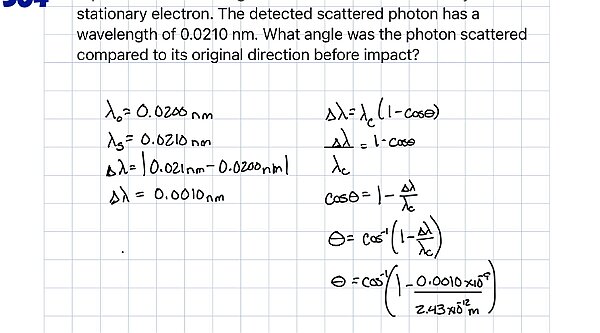 504
stationary electron. The detected scattered photon has a
wavelength of 0.0210 nm. What angle was the photon scattered
compared to its original direction before impact?
λ₀ = 0.0200 nm
λₛ = 0.0210 nm
Δλ = |0.021nm - 0.0200nm|
Δλ = 0.0010 nm
Δλ = λc (1 - cosθ)
Δλ/λc = 1 - cosθ
cosθ = 1 - Δλ/λc
θ = cos⁻¹(1 - Δλ/λc)
θ = cos⁻¹(1 - 0.0010 x10⁻⁹/2.43 x10⁻¹² m)